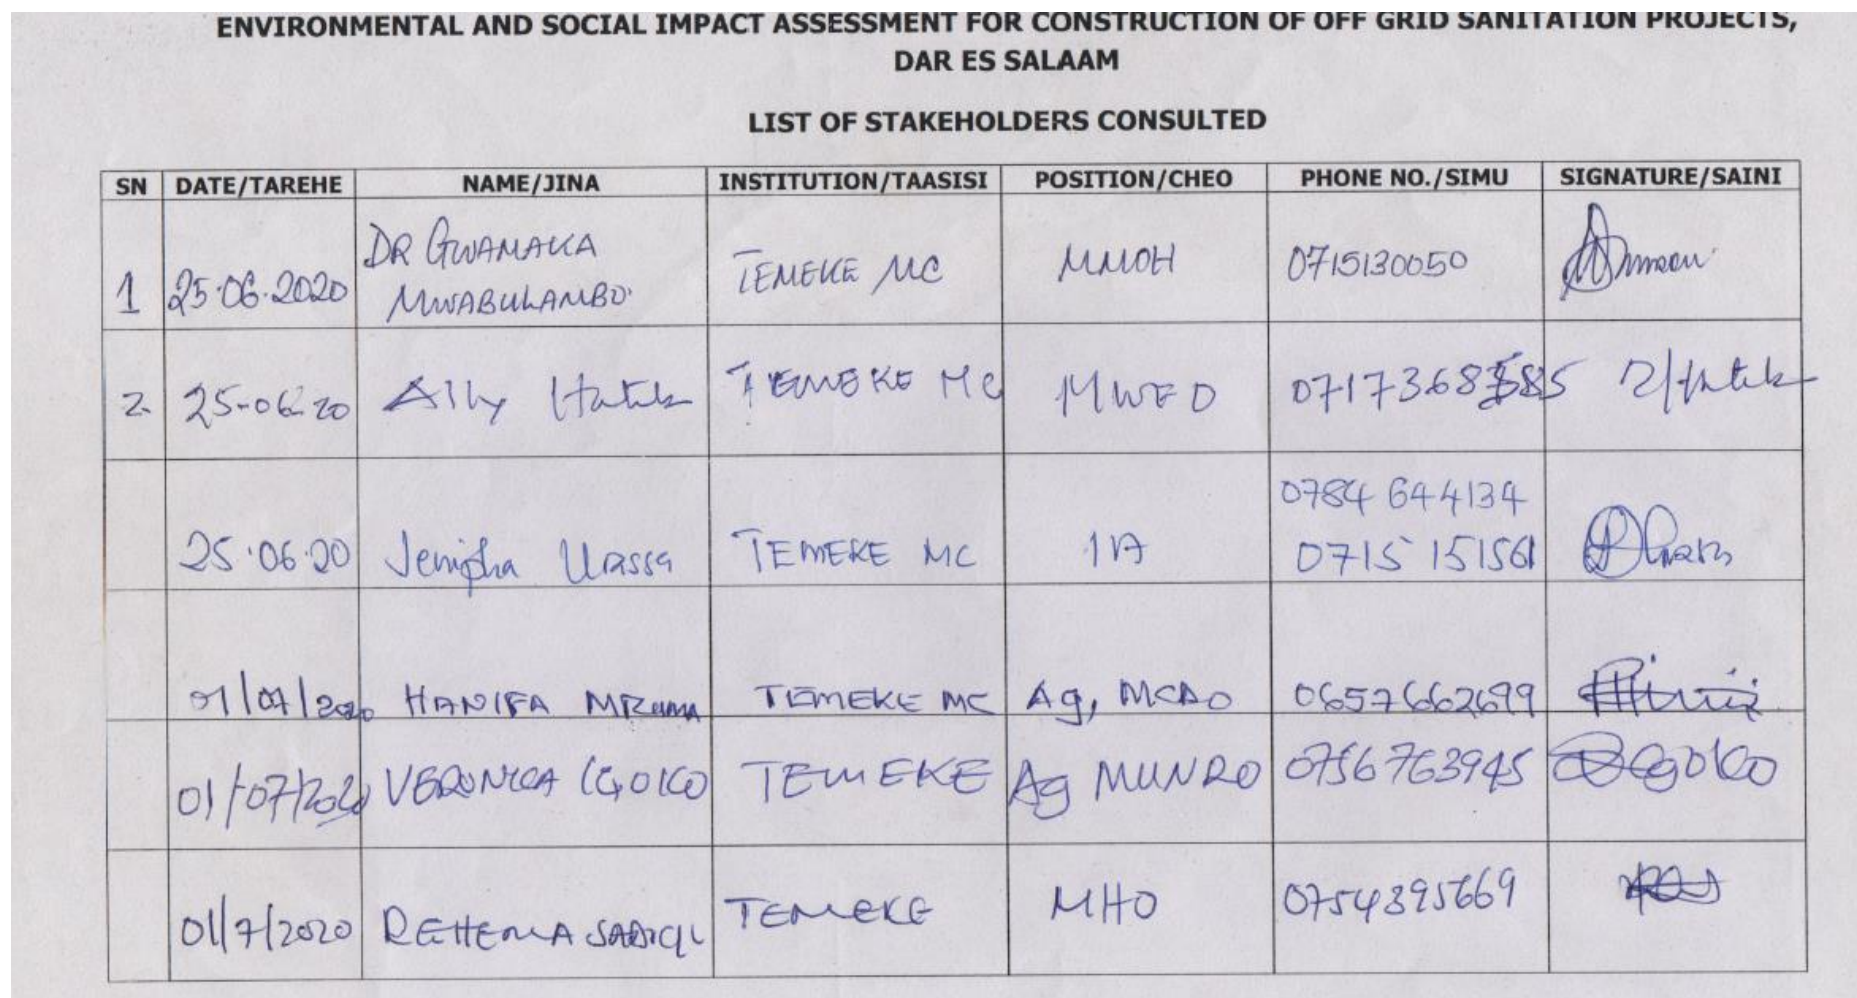 ENVIRONMENTAL AND SOCIAL IMPACT ASSESSMENT FOR CONSTRUCTION OF OFF GRID SANITATION PROJECTS,
DAR ES SALAAM
LIST OF STAKEHOLDERS CONSULTED
SN DATE/TAREHE NAME/JINA INSTITUTION/TAASISI POSITION/CHEO PHONE NO./SIMU SIGNATURE/SAINI
1 25.06.2020 DR GWAMAKA MWABULAMBO TEMEKE MC MMOH 0715130050
2. 25-06-20 Ally Hatibu TEMEKE MC MWED
25.06.20 Jenipha Urassa TEMEKE MC IA 0784 644134
0715 151561
01/07/2020 HANIFA MZUMA TEMEKE MC Ag, MCDO 0657662699
01/07/2020 VERONICA TEMEKE Ag MUNRO 0756763945
01/7/2020 REHEMA SADICKI TEMEKE MHO 0754395669